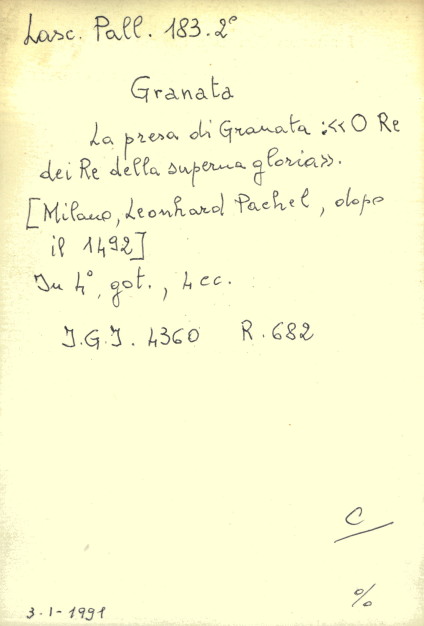 Lasc. Pall. 183.2°
Granata
La presa di Granata :«O Re
dei Re della superna gloria».
[Milano, Leonhard Pachel, dopo
il 1492]
In 4°, got., 4 cc.
I.G.I. 4360 R. 682
C
%
3-1-1991